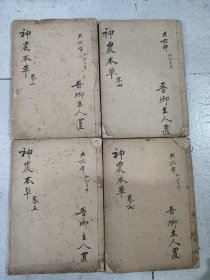 神農本草 卷二
共六本
香鄉主人置
神農本草 卷四
共六本
香鄉主人置
神農本草 卷五
共六本
香鄉主人置
神農本草 卷六
共六本
香鄉主人置